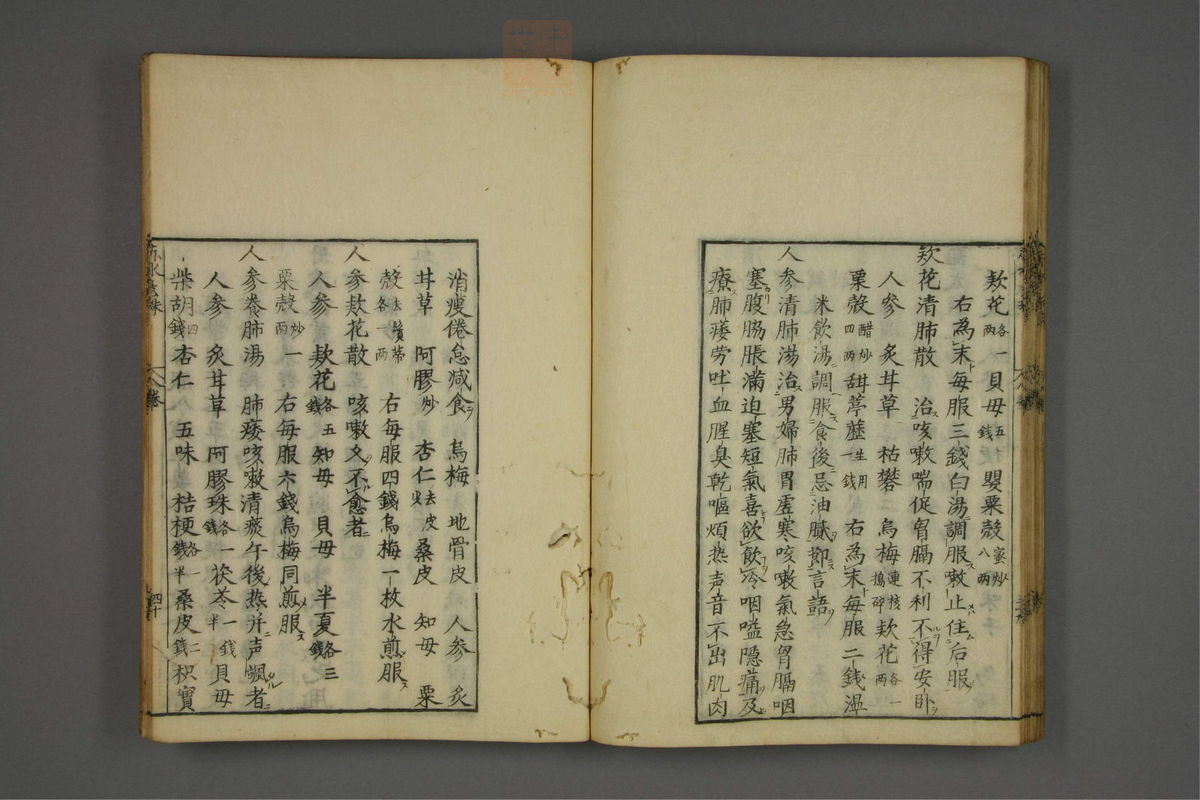 欵花各一両貝毋五錢罌粟殼蜜炒八両
右為末毎服三錢白湯調服嗽止住后服
欵花清肺散　治咳嗽喘促胷膈不利不得安卧
人參　炙甘草　枯礬　烏梅連核搗碎欵花各一両
粟殼醋炒四両甜葶藶生用一錢右為末毎服二錢温
米飲湯調服食後忌油膩節言語
人參清肺湯治男婦肺胃虛寒咳嗽氣急胷膈咽
塞腹脇脹滿迫塞短氣喜欲飲冷咽嗌隠痛及
療肺痿労吐血腥臭乾嘔煩热声音不出肌肉
消瘦倦怠减食　烏梅　地骨皮　人參　炙
甘草　阿膠炒　杏仁去皮尖桑皮　知毋　粟
殼去鬚蒂各一両　右毎服四錢烏梅一枚水煎服
人參欵花散　咳嗽久不愈者
人參　欵花各五錢知毋　貝毋　半夏各三錢
粟殼炒一両　右毎服六錢烏梅同煎服
人參養肺湯　肺痿咳嗽清痰午後热并声颯者
人參　炙甘草　阿膠珠各一錢茯苓一錢半貝毋
柴胡四錢杏仁　五味　桔梗各一錢半桑皮二錢枳實
四十